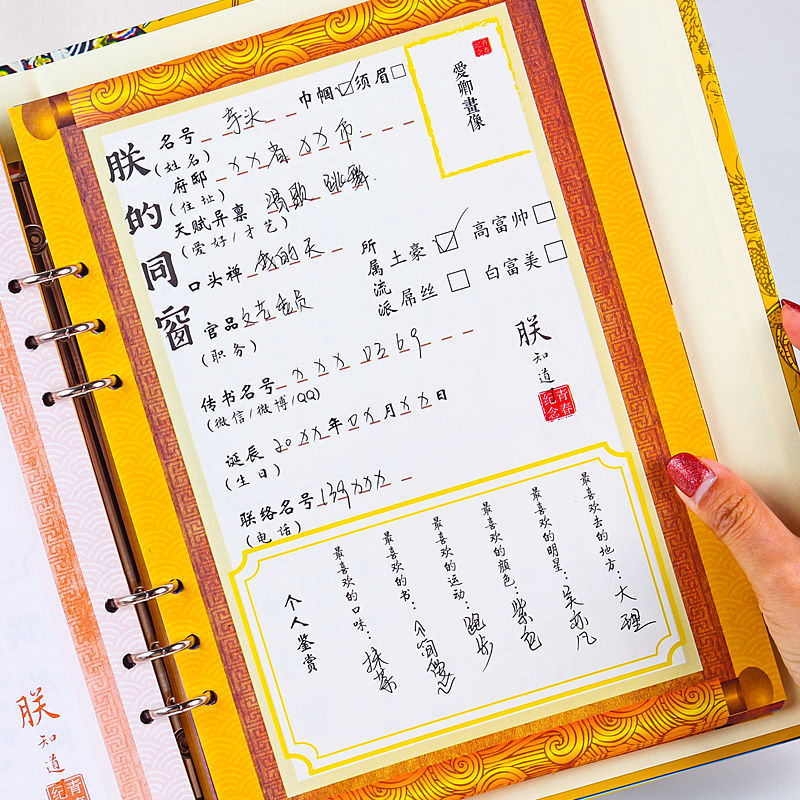 朕的同窗
巾帼☑须眉□
名号
(姓名)
府邸 ××省 ××市
(住址)
天赋异禀 唱歌 跳舞
(爱好/才艺)
口头禅 我的天
官品 文艺委员
(职务)
传书名号 ×××0369
(微信/微博/QQ)
诞辰 20××年0×月××日
(生日)
联络名号 139×××
(电话)
愛卿畫像
所属流派
土豪☑ 高富帅□
屌丝□ 白富美□
朕知道
青春纪念
最喜欢去的地方：大理
最喜欢的明星：吴亦凡
最喜欢的颜色：紫色
最喜欢的运动：跑步
最喜欢的书：
最喜欢的口味：抹茶
个人鉴赏
朕知道
青春纪